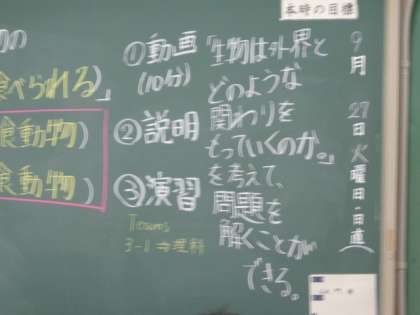 本時の目標
9月27日火曜日・日直
「生物は外界と
どのような
関わりを
もっていくのか。」
を考えて、
問題を
解くことが
できる。
①動画
(10分)
②説明
③演習
Teams
3-1 ⇒理科
切の
食べられる)」
食動物)
食動物)